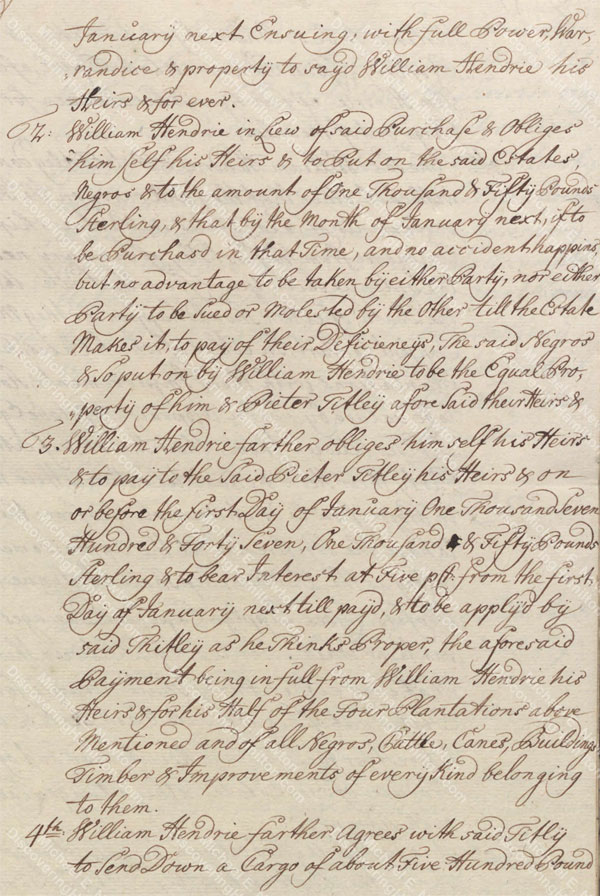 January next Ensuing, with full Power, War,
„randice & property to sayd William Hendrie his
Heirs & for ever.
2: William Hendrie in Liew of said Purchase & Obliges
him self his Heirs & to Put on the said Estates,
Negros & to the amount of One Thousand & Fifty Pounds
Sterling, & that by the Month of January next, if to
be Purchasd in that Time, and no accident happins,
but no advantage to be taken by either Party, nor either
Party to be Sued or Molested by the Other till the Estate
Makes it, to pay of their Deficiencys, The said Negros
& So put on by William Hendrie to be the Equal Pro,
„perty of him & Pieter Titley afore Said their Heirs &
3. William Hendrie farther obliges him self his Heirs
& to pay to the Said Pieter Titley his Heirs & on
or before the first Day of January One Thousand Seven
Hundred & Forty Seven, One Thousand & Fifty Pounds
Sterling & to bear Interest at Five pCt. from the first
Day of January next till payd, & to be apply'd by
said Thitley as he Thinks Proper, the aforesaid
Payment being in full from William Hendrie his
Heirs & for his Half of the Four Plantations above
Mentioned and of all Negros, Cattle, Canes, Buildings
Timber & Improvements of every Kind belonging
to them.
4th. William Hendrie farther Agrees with said Titly
to Send Down a Cargo of about Five Hundred Pound